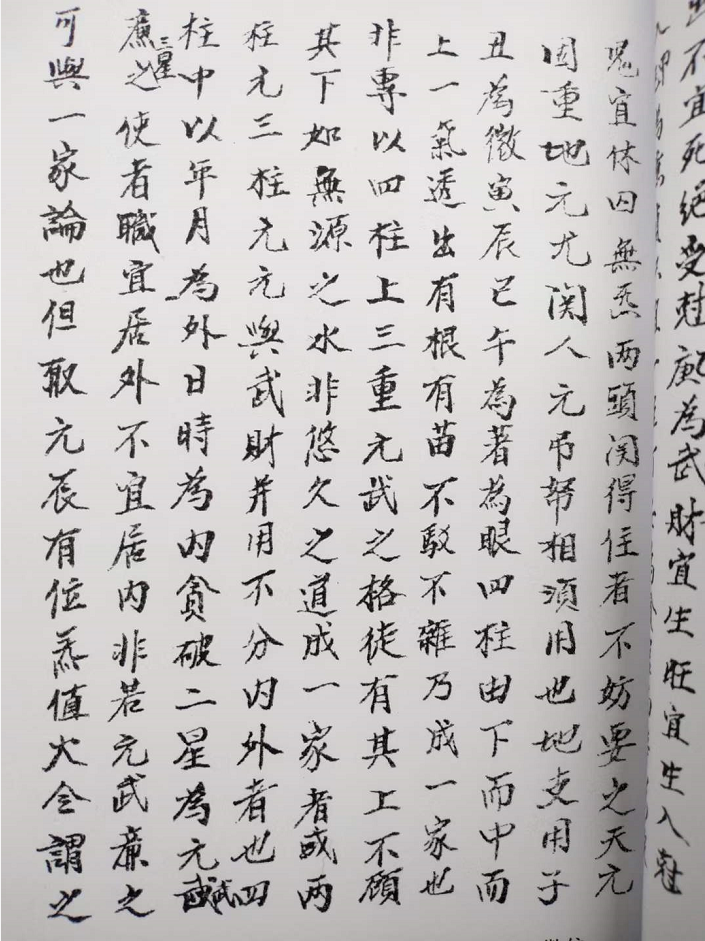 不宜死絕受尅庚為武財宜生旺宜生入尅
鬼宜休囚無炁两頭関得住者不妨要之天元
固重地元尤関人元吊帮相須用也地支用子
丑為微寅辰巳午為著為眼四柱由下而中而
上一氣透出有根有苗不駁不雜乃成一家也
非專以四柱上三重元武之格徒有其上不顧
其下如無源之水非悠久之道成一家者或两
柱元三柱元元與武財并用不分内外者也四
柱中以年月為外日時為内貪破二星為元武
廉之三星使者職宜居外不宜居内非若元武廉之
可與一家論也但取元辰有位炁值大令謂之